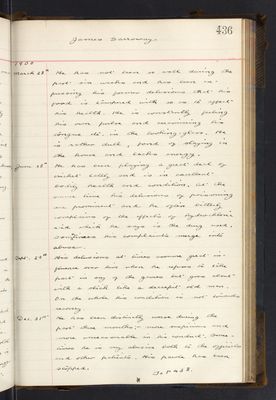 436
James Darroway.
1900
March 28th He has not been so well during the
past six weeks and has been
his former delusions that his
food is tampered with so as to affect
his health. He is constantly feeling
his own pulse and examining his
tongue etc. in the looking-glass. He
is rather dull, fond of staying in
the house and lacks energy.
June 28th He has been playing a great deal of
cricket lately and is in excellent
bodily health and condition, but the
same time his delusions of poisoning
are prominent and he often bitterly
complains of the effects of hydrochloric
acid which he says is the drug used.
Sometimes his complaints merge into
abuse.
Sept. 29th His delusions at times assume great
over him when he refuses to take
part in any of the games but goes about
with a stick like a decrepit old man.
On the whole his condition is not towards
recovery
Dec. 31st He has been distinctly worse during the
past three months; more suspicious and
more unreasonable in his conduct. Some-
times he is very abusive both to the officials
and other patients. His parole has been
stopped.
To P.